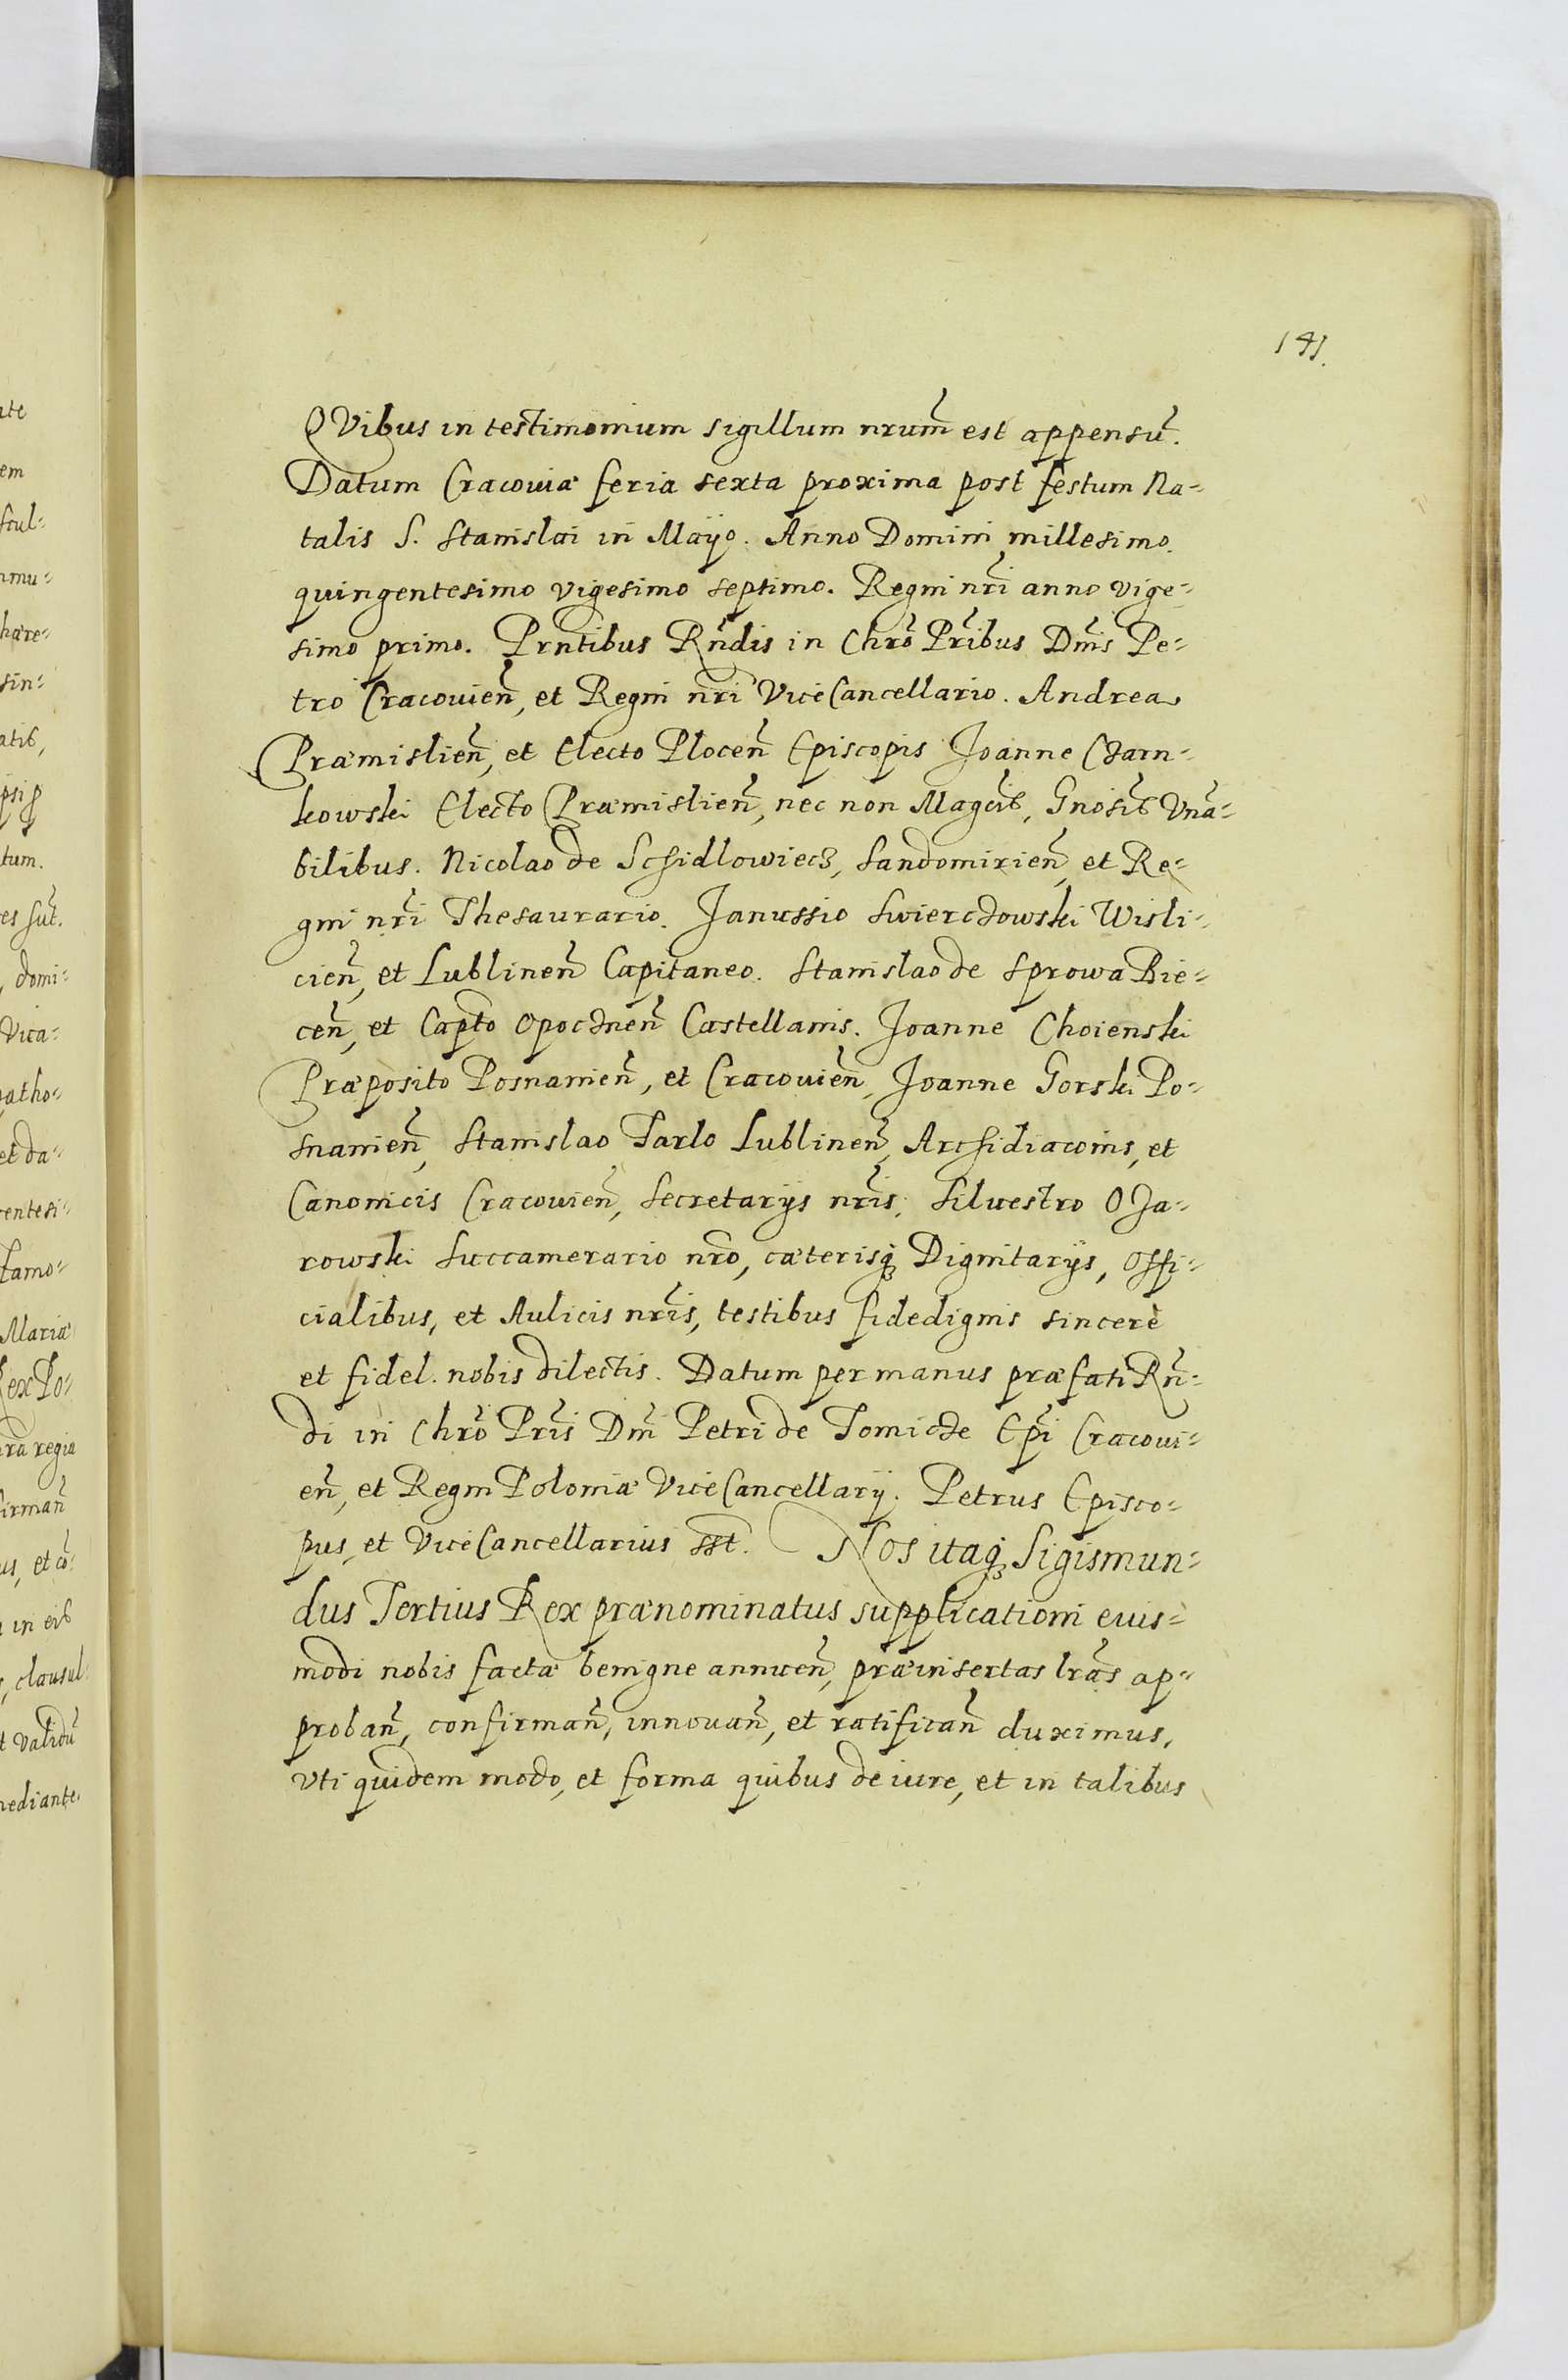 141.
QVibus in testimonium sigillum nrum̃ est appensũ.
Datum Cracouiæ feria sexta proxima post festum Na-
talis S. Stanislai in Mayo. Anno Domini millesimo
quingentesimo vigesimo septimo. Regni nr̃i anno vige-
simo primo. Prñtibus Rñdis in Chrõ Pr̃ibus Dñis Pe-
tro Cracouieñ, et Regni nr̃i ViceCancellario. Andrea
Præmislieñ, et Electo Ploceñ Episcopis Joanne Czarn-
kowski Electo Præmislieñ, nec non Magcis, Gnosis Vnã-
bilibus. Nicolao de Schidlowiecz, Sandomirieñ, et Re-
gni nr̃i Thesaurario. Janussio Swierczowski Wisli-
cieñ, et Lublineñ Capitaneo. Stanislao de Sprowa Bie-
ceñ, et Capto Opoczneñ Castellanis. Joanne Choienski
Præposito Posnanieñ, et Cracouieñ, Joanne Gorski Po-
snanieñ, Stanislao Tarlo Lublineñ, Archidiaconis, et
Canonicis Cracouieñ, Secretarijs nr̃is. Siluestro Oza-
rowski Succamerario nrõ, cæterisq Dignitarijs, Offi-
cialibus, et Aulicis nr̃is, testibus fidedignis sincerè
et fidel. nobis dilectis. Datum per manus præfati Rñ-
di in Chrõ Pr̃is Dñi Petri de Tomicze Epĩ Cracoui-
eñ, et Regni Poloniæ ViceCancellarij. Petrus Episco-
pus, et ViceCancellarius sst. Nos itaq Sigismun-
dus Tertius Rex prænominatus supplicationi euis-
modi nobis factæ benigne annueñ, præinsertas lrãs ap-
probañ, confirmañ, innouañ, et ratificañ duximus,
vti quidem modo, et forma quibus de iure, et in talibus